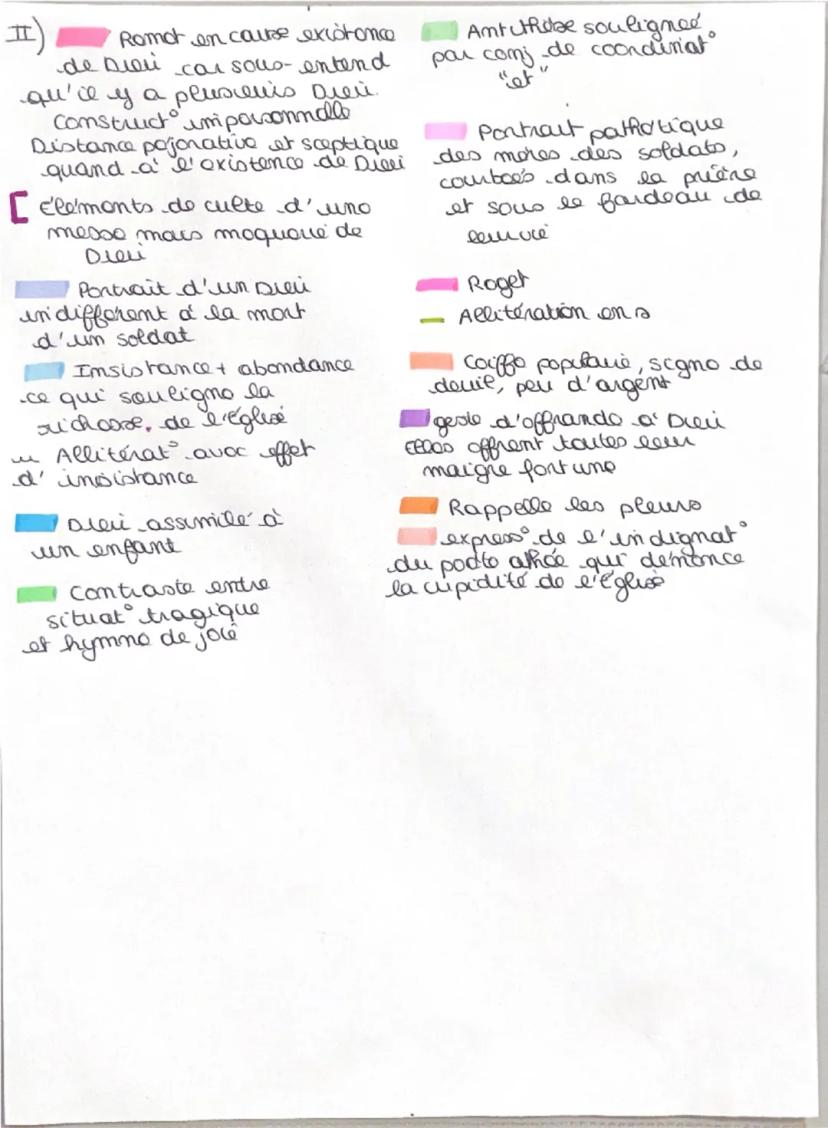 II) Remet en cause existence
de Dieu car sous-entend
qu'il y a plusieurs Dieu.
Construct° impersonnelle
Distance péjorative et sceptique
quand à l'existence de Dieu
Eléments de culte d'une
messe mais moquerie de
Dieu
Portrait d'un Dieu
indifférent à la mort
d'un soldat
Insistance + abondance
ce qui souligne la
richesse de l'église
Allitérat° avec effet
d'insistance
Dieu assimilé à
un enfant
Contraste entre
situat° tragique
et hymne de joie
Antithèse soulignée
par conj de coordinat°
"et"
Portrait pathétique
des mères des soldats,
courbées dans la prière
et sous le fardeau de
leur vie
Rejet
Allitération en s
Coiffe populaire, signe de
deuil, peu d'argent
geste d'offrande à Dieu
Elles offrent toutes leur
maigre fortune
Rappelle les pleurs
express° de l'indignat°
du poète athée qui dénonce
la cupidité de l'église